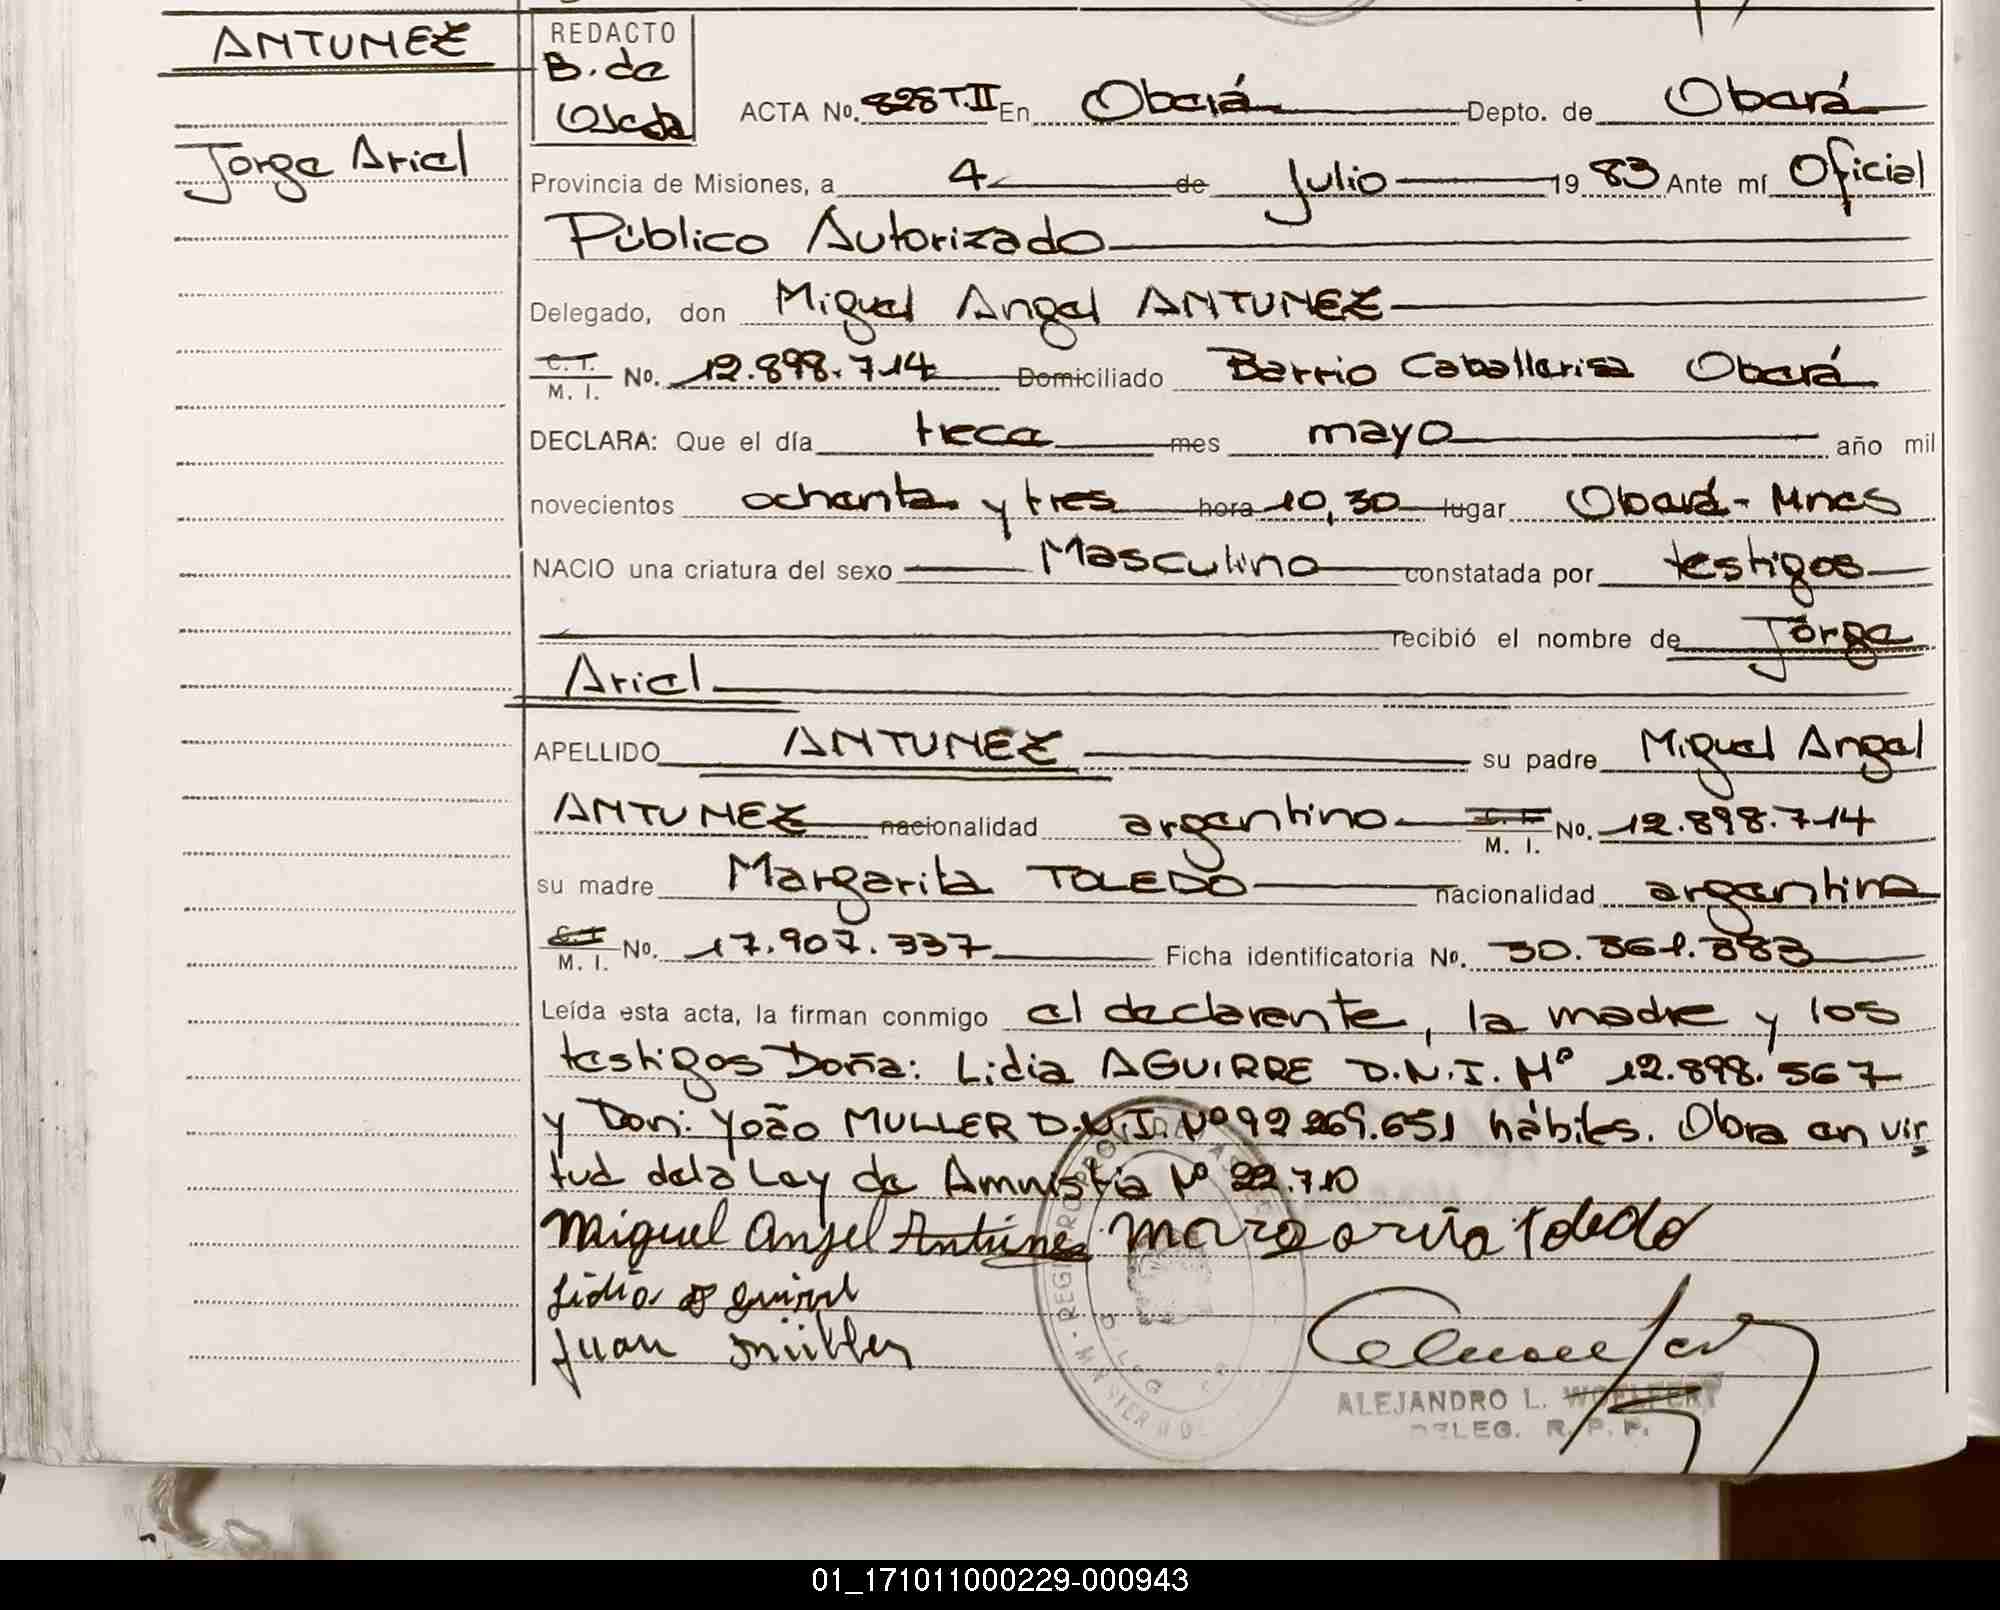 ANTUNEZ
Jorge Ariel
REDACTO
B. de
Ojeda
ACTA No. 828 T.II En Oberá Depto. de Oberá
Provincia de Misiones, a 4 de Julio 19 83 Ante mí Oficial
Público Autorizado
Delegado, don Miguel Angel ANTUNEZ
C. I.
M. I. No. 12.898.714 Domiciliado Barrio Caballeriza Oberá
DECLARA: Que el día trece mes mayo año mil
novecientos ochenta y tres hora 10,30 lugar Oberá - Mnes
NACIO una criatura del sexo Masculino constatada por testigos
recibió el nombre de Jorge
Ariel
APELLIDO ANTUNEZ su padre Miguel Angel
ANTUNEZ nacionalidad argentino C. I.
M. I. No. 12.898.714
su madre Margarita TOLEDO nacionalidad argentina
C. I.
M. I. No. 17.907.337 Ficha identificatoria No. 30.361.383
Leída esta acta, la firman conmigo el declarante, la madre y los
testigos Doña: Lidia AGUIRRE D.N.I. Nº 12.898.567
y Don: Yoão MULLER D.N.I. Nº 92 269.651 hábiles. Obra en vir
tud dela Ley de Amnistia Nº 22.710
Miguel Angel Antúnez Margarita Toledo
Lidia Aguirre
Juan Müller
ALEJANDRO L. WOELFERT
DELEG. R. P. P.
01_171011000229-000943